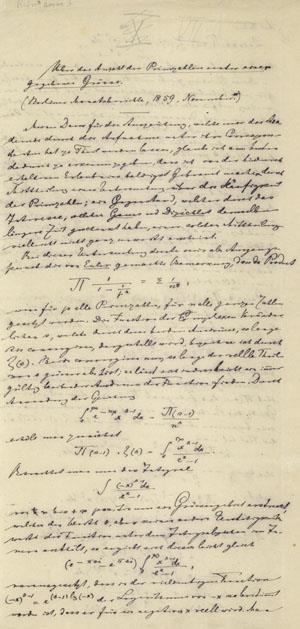 Ueber die Anzahl der Primzahlen unter einer
gegebenen Grösse.
(Berliner Monatsberichte, 1859, November)
Meinen Dank für die Auszeichnung, welche mir die Aka-
demie durch die Aufnahme unter ihre Correspon-
denten hat zu Theil werden lassen, glaube ich am besten
dadurch zu erkennen zu geben, dass ich von der hiedurch
erhaltenen Erlaubniss baldigst Gebrauch mache durch
Mittheilung einer Untersuchung über die Häufigkeit
der Primzahlen; ein Gegenstand, welcher durch das
Interesse, welches Gauss und Dirichlet demselben
längere Zeit geschenkt haben, einer solchen Mittheilung
vielleicht nicht ganz unwerth erscheint.
Bei dieser Untersuchung diente mir als Ausgangs-
punkt die von Euler gemachte Bemerkung, dass das Product
Π 1/(1 − 1/p^s) = Σ 1/n^s,
wenn für p alle Primzahlen, für n alle ganzen Zahlen
gesetzt werden. Die Function der complexen Veränder-
lichen s, welche durch diese beiden Ausdrücke, so lange
sie convergiren, dargestellt wird, bezeichne ich durch
ζ(s). Beide convergiren nur, so lange der reelle Theil
von s grösser als 1 ist; es lässt sich indess leicht ein immer
gültig bleibender Ausdruck der Function finden. Durch
Anwendung der Gleichung
∫₀^∞ e^{−nx} x^{s−1} dx = Π(s−1)/n^s
erhält man zunächst
Π(s−1) · ζ(s) = ∫₀^∞ x^{s−1} dx/(e^x − 1).
Betrachtet man nun das Integral
∫ (−x)^{s−1} dx/(e^x − 1)
von +∞ bis +∞ positiv um ein Grössengebiet erstreckt,
welches den Werth 0, aber keinen andern Unstetigkeits-
werth der Function unter dem Integralzeichen im In-
nern enthält, so ergiebt sich dieses leicht gleich
(e^{−πsi} − e^{πsi}) ∫₀^∞ x^{s−1} dx/(e^x − 1),
vorausgesetzt, dass in der vieldeutigen Function
(−x)^{s−1} = e^{(s−1) lg(−x)} der Logarithmus von −x so bestimmt
worden ist, dass er für ein negatives x reell wird. Man